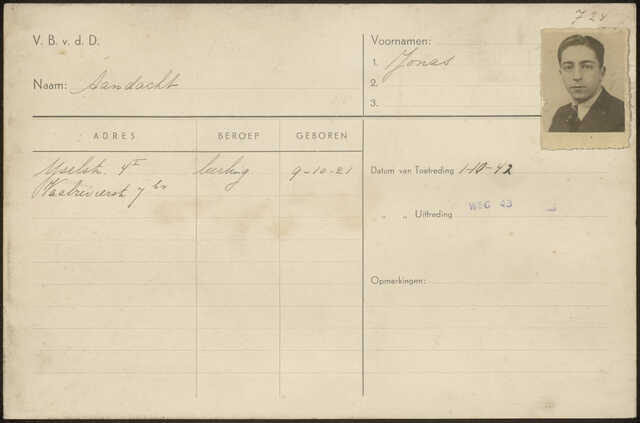 724
V. B. v. d. D.
Voornamen:
1. Jonas
2.
3.
Naam: Aandacht
ADRES BEROEP GEBOREN
IJselstr. 4 I leerling 9-10-21
Waalrivierstr 7 bv
Datum van Toetreding 1-10-42
„ „ Uittreding WEG 43
Opmerkingen: